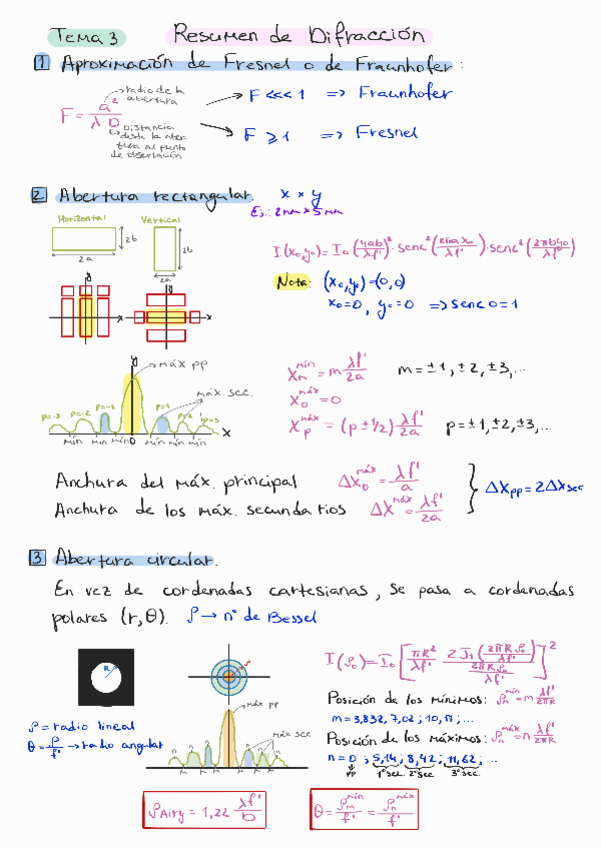 TEMA 3 Resumen de Difracción
1 Aproximación de Fresnel o de Fraunhofer:
F = a²/λ·D
radio de la abertura
Distancia desde la abertura al punto de observación
F <<< 1 => Fraunhofer
F ⩾ 1 => Fresnel
2 Abertura rectangular. x × y
Ej.: 2mm x 5mm
Horizontal Vertical
2b 2b
2a 2a
I(x₀,y₀) = I₀ (4ab/λf')² · senc² (2πax₀/λf') · senc² (2πby₀/λf')
Nota: (x₀,y₀) = (0,0)
x₀=0, y₀=0 => senc 0 = 1
y y
x x
y
máx pp
máx sec.
p=-3 p=-2 p=-1 p=1 p=2 p=3
mín mín mín 0 mín mín mín x
x_m^mín = m λf'/2a m = ±1, ±2, ±3,...
x_0^máx = 0
x_p^máx = (p ± 1/2) λf'/2a p = ±1, ±2, ±3,...
Anchura del máx. principal Δx_0^máx = λf'/a
Anchura de los máx. secundarios Δx^máx = λf'/2a
Δx_pp = 2Δx_sec
3 Abertura circular.
En vez de cordenadas cartesianas, se pasa a cordenadas
polares (r,θ). ρ → nº de Bessel
R
ρ
I(ρ₀) = I₀ [πR²/λf' · 2J₁(2πRρ₀/λf') / (2πRρ₀/λf')]²
máx pp
máx sec
ρ = radio lineal
θ = ρ/f' → radio angular
Posición de los mínimos: ρ_m^mín = m λf'/2πR
m = 3,832; 7,02; 10,17; ...
Posición de los máximos: ρ_n^máx = n λf'/2πR
n = 0; 5,14; 8,42; 11,62; ...
pp 1º sec. 2º sec 3º sec
ρ_Airy = 1,22 λf'/D
θ = ρ_m^mín/f' = ρ_n^máx/f'